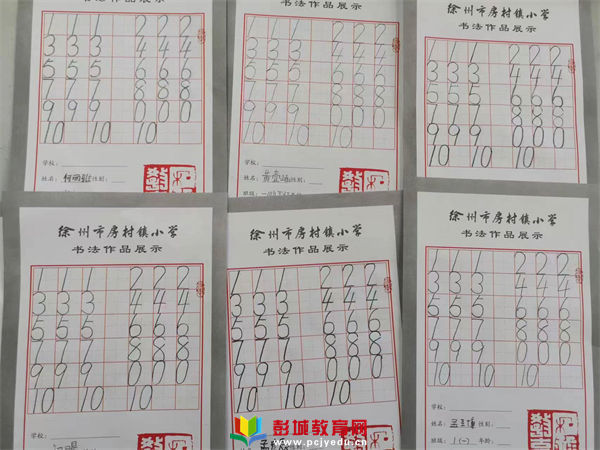 书法作品展示
1 1 1 2 2 2
3 3 3 4 4 4
5 5 5 6 6 6
7 7 7 8 8 8
9 9 9 0 0 0
10 10 10
学校:
姓名: 性别:
书法作品展示
1 1 1 2 2 2
3 3 3 4 4 4
5 5 5 6 6 6
7 7 7 8 8 8
9 9 9 0 0 0
10 10 10
学校:
姓名: 性别:
班级:
徐州市房村镇小学
书法作品展示
1 1 1 2 2 2
3 3 3 4 4 4
5 5 5 6 6 6
7 7 7 8 8 8
9 9 9 0 0 0
10 10 10
徐州市房村镇小学
书法作品展示
1 1 1 2 2 2
3 3 3 4 4 4
5 5 5 6 6 6
7 7 7 8 8 8
9 9 9 0 0 0
10 10 10
学校:
徐州市房村镇小学
书法作品展示
1 1 1 2 2 2
3 3 3 4 4 4
5 5 5 6 6 6
7 7 7 8 8 8
9 9 9 0 0 0
10 10 10
徐州市房村镇小学
书法作品展示
1 1 1 2 2 2
3 3 3 4 4 4
5 5 5 6 6 6
7 7 7 8 8 8
9 9 9 0 0 0
10 10 10
学校:
姓名: 性别:
班级: 1(一) 年龄:
彭城教育网
www.pcjyedu.cn